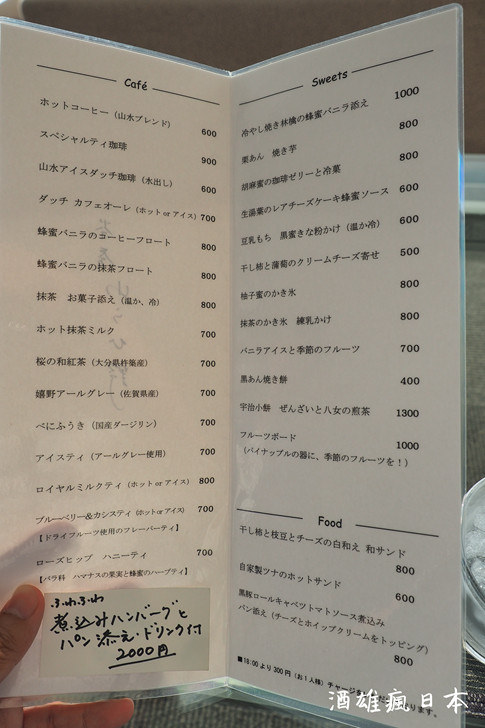 Café
ホットコーヒー（山水ブレンド） 600
スペシャルティ珈琲 900
山水アイスダッチ珈琲（水出し） 600
ダッチ カフェオーレ（ホット or アイス） 700
蜂蜜バニラのコーヒーフロート 800
蜂蜜バニラの抹茶フロート 800
抹茶 お菓子添え（温か、冷） 800
ホット抹茶ミルク 700
桜の和紅茶（大分県杵築産） 700
嬉野アールグレー（佐賀県産） 700
べにふうき（国産ダージリン） 700
アイスティ（アールグレー使用） 700
ロイヤルミルクティ（ホット or アイス） 800
ブルーベリー&カシスティ（ホット or アイス） 700
【ドライフルーツ使用のフレーバーティ】
ローズヒップ ハニーティ 700
【バラ科 ハマナスの果実と蜂蜜のハーブティ】
ふわふわ
煮込みハンバーグと
パン添え・ドリンク付
2000円
Sweets
冷やし焼き林檎の蜂蜜バニラ添え 1000
栗あん 焼き芋 800
胡麻蜜の珈琲ゼリーと冷菓 800
生湯葉のレアチーズケーキ蜂蜜ソース 600
豆乳もち 黒蜜きな粉かけ（温か冷） 600
干し柿と葡萄のクリームチーズ寄せ 500
柚子蜜のかき氷 800
抹茶のかき氷 練乳かけ 800
バニラアイスと季節のフルーツ 700
黒あん焼き餅 400
宇治小餅 ぜんざいと八女の煎茶 1300
フルーツボード 1000
（パイナップルの器に、季節のフルーツを！）
Food
干し柿と枝豆とチーズの白和え 和サンド
800
自家製ツナのホットサンド
600
黒豚ロールキャベツトマトソース煮込み
パン添え（チーズとホイップクリームをトッピング）
800
■18:00 より 300円（お1人様）チャージを
ります。
酒雄瘋日本